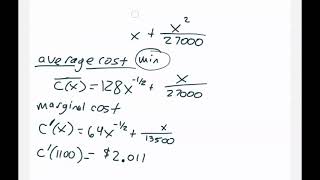 x + x²/27000
average cost min
C(x) = 128x^-1/2 + x/27000
marginal cost
C'(x) = 64x^-1/2 + x/13500
C'(1100) = $2.011